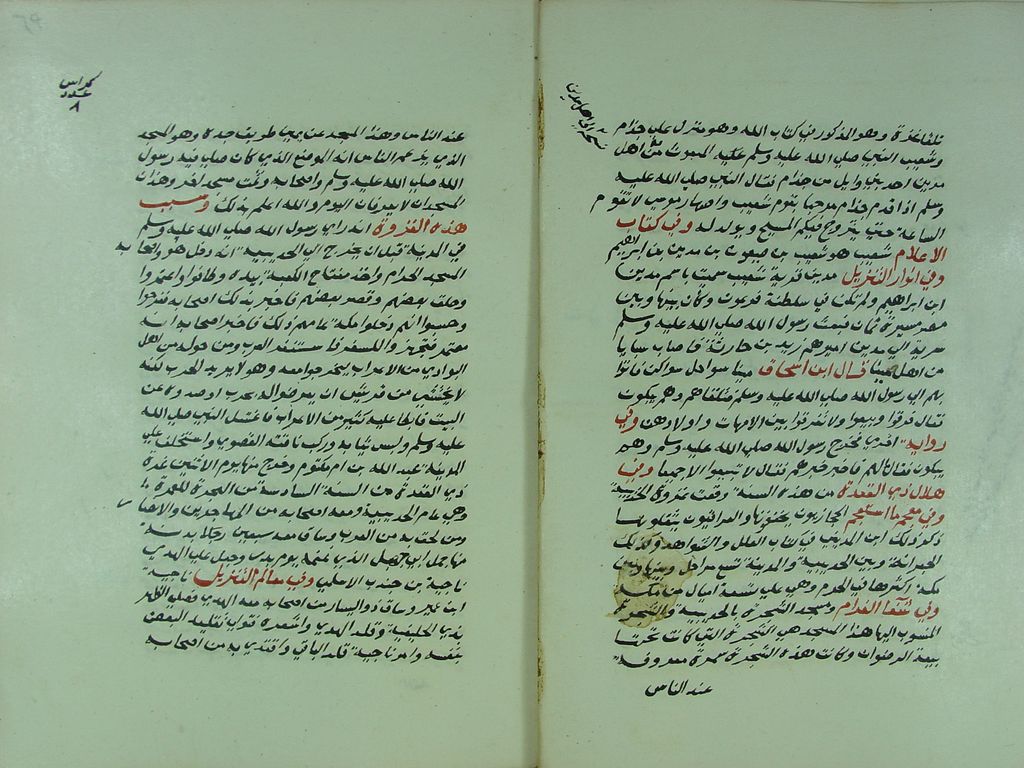 تلقا غزة وهو المذكور في كتاب الله وهو منزل على جذام
وشعيب النبي صلى الله عليه وسلم المبعوث من اهل
مدين احد بني وايل من جذام فقال النبي صلى الله عليه
وسلم اذا قدم جذام مرحبا بقوم شعيب واصهار موسى لا تقوم
الساعة حتى يتزوج فيكم المسيح ويولد له وفي كتاب
الاعلام شعيب هو شعيب بن صيفون بن مدين بن ابراهيم
وفي انوار التنزيل مدين قرية شعيب سميت باسم مدين
ابن ابراهيم ولم تكن في سلطنة فرعون وكان بينها وبين
مصر مسيرة ثمان فبعث رسول الله صلى الله عليه وسلم
سرية الى مدين اميرهم زيد بن حارثة فاصاب سبايا
من اهل مينا قال ابن اسحاق مينا سواحل فاتوا
بهم الى رسول الله صلى الله عليه وسلم وهم يبكون
فقال فرقوا وبيعوا ولا تفرقوا بين الامهات واولادهن وفي
رواية اخرى فخرج رسول الله صلى الله عليه وسلم وهم
يبكون فقال مالهم فاخبر خبرهم فقال لا تبيعوا الا جميعا وفي
هلال ذي القعدة من هذه السنة وقعت غزوة الحديبية
وفي معجم ما استعجم الحجازيون يخففونها والعراقيون يثقلونها
ذكر ذلك ابن المديني في كتاب العلل والشواهد وكذلك
الجعرانة وبين الحديبية والمدينة تسع مراحل وبينها وبين
مكة اكثرها في الحرم وهي على تسعة اميال من مكة
وفي شفا الغرام ومسجد الشجرة بالحديبية والشجرة
المنسوب اليها هذا المسجد هي الشجرة التي كانت تحتها
بيعة الرضوان وكانت هذه الشجرة سمرة معروفة
عند الناس
كراس
عدد
٨
عند الناس وهذا المسجد عن يمين طريق جده وهو المسجد
الذي يزعم الناس انه الموضع الذي كان صلى فيه رسول
الله صلى الله عليه وسلم واصحابه وثمت مسجد اخر وهذان
المسجدان لا يعرفان اليوم والله اعلم بذلك وسبب
هذه الغزوة انه راى رسول الله صلى الله عليه وسلم
في المدينة قبل ان يخرج الى الحديبية انه دخل هو واصحابه
المسجد الحرام واخذ مفتاح الكعبة بيده وطافوا واعتمروا
وحلق بعضهم وقصر بعضهم فاخبر بذلك اصحابه ففرحوا
وحسبوا انهم دخلوا مكة عامهم ذلك فاخبر اصحابه انه
معتمر فتجهزوا للسفر فاستنفر العرب ومن حوله من اهل
البوادي من الاعراب ليخرجوا معه وهو لا يريد الحرب لكنه
من قريش ان يعرضوا له بحرب او صدوه عن
البيت فابطا عليه كثير من الاعراب فاغتسل النبي صلى الله
عليه وسلم ولبس ثيابه وركب ناقته القصوى واستخلف على
المدينة عبد الله بن ام مكتوم وخرج منها يوم الاثنين غرة
ذي القعدة من السنة السادسة من الهجرة للعمرة
وهي عام الحديبية ومعه اصحابه من المهاجرين والانصار
ومن لحق به من العرب وساق معه سبعين بدنة
منها جمل ابي جهل الذي غنمه يوم بدر وجعل على الهدي
ناجية بن جندب الاسلمي وفي معالم التنزيل ناجية
ابن عمير وساق ذو اليسار من اصحابه معه الهدي فصلى الظهر
بذي الحليفة وقلد الهدي واشعره فولى تقليد البعض
بنفسه وامر ناجية قلد الباقي واقتدى به من اصحابه